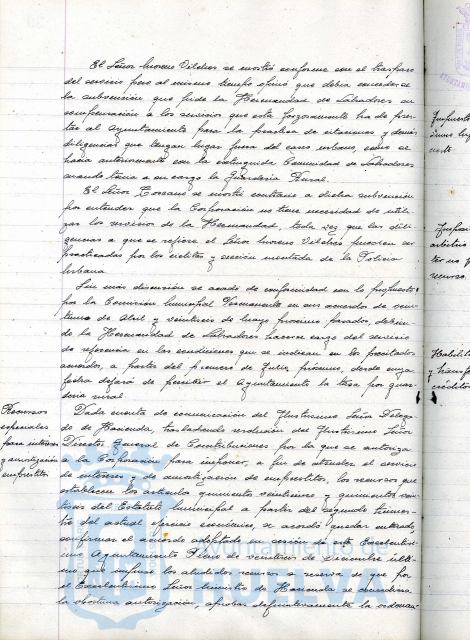 El Señor Moreno Vilches se mostró conforme con el traspaso
del servicio pero al mismo tiempo opinó que debia concederse
la subvención que pide la Hermandad de Labradores en
compensación a los servicios que esta forzosamente ha de pres-
tar al Ayuntamiento para la practica de citaciones y demás
diligencias que tengan lugar fuera del casco urbano, como se
hacia anteriormente con la extinguida Comunidad de Labradores
cuando tenia a su cargo la Guarderia Rural.
El Señor se mostró contrario a dicha subvención
por entender que la Corporación no tiene necesidad de utili-
zar los servicios de la Hermandad, toda vez que las dili-
gencias a que se refiere el Señor Moreno Vilches pueden ser
practicadas por los y sección montada de la Policia
Urbana.
Sin mas discusión se acordó de conformidad con lo propuesto
por la Comisión Municipal Permanente en sus acuerdos de
de Abril y veintiseis de Mayo proximo pasados, debien-
do la Hermandad de Labradores hacerse cargo del servicio
de referencia en las condiciones que se indican en los precitados
acuerdos, a partir del primero de Julio próximo, desde cuya
fecha dejará de percibir el Ayuntamiento la tasa por guar-
deria rural.
Recursos
especiales
para intereses
y amortización
empréstitos
Dada cuenta de comunicación del Ilustrisimo Señor Delega-
do de Hacienda, trasladando resolución del Ilustrisimo Señor
Director General de Contribuciones por la que se autoriza
a la Corporación para imponer, a fin de atender el servicio
de intereses y de amortización de empréstitos, los recursos que
establecen los articulos quinientos veintinueve y quinientos
del Estatuto Municipal a partir del segundo trimes-
tre del actual ejercicio económico, se acordó quedar enterado,
confirmar el acuerdo adoptado en sesión de este Excelentisi-
mo Ayuntamiento Pleno de veintiseis de Diciembre ulti-
mo que impuso los aludidos recursos a reserva de que por
el Excelentisimo Señor Ministro de Hacienda se concediera
la oportuna autorización, aprobar definitivamente la ordenan-